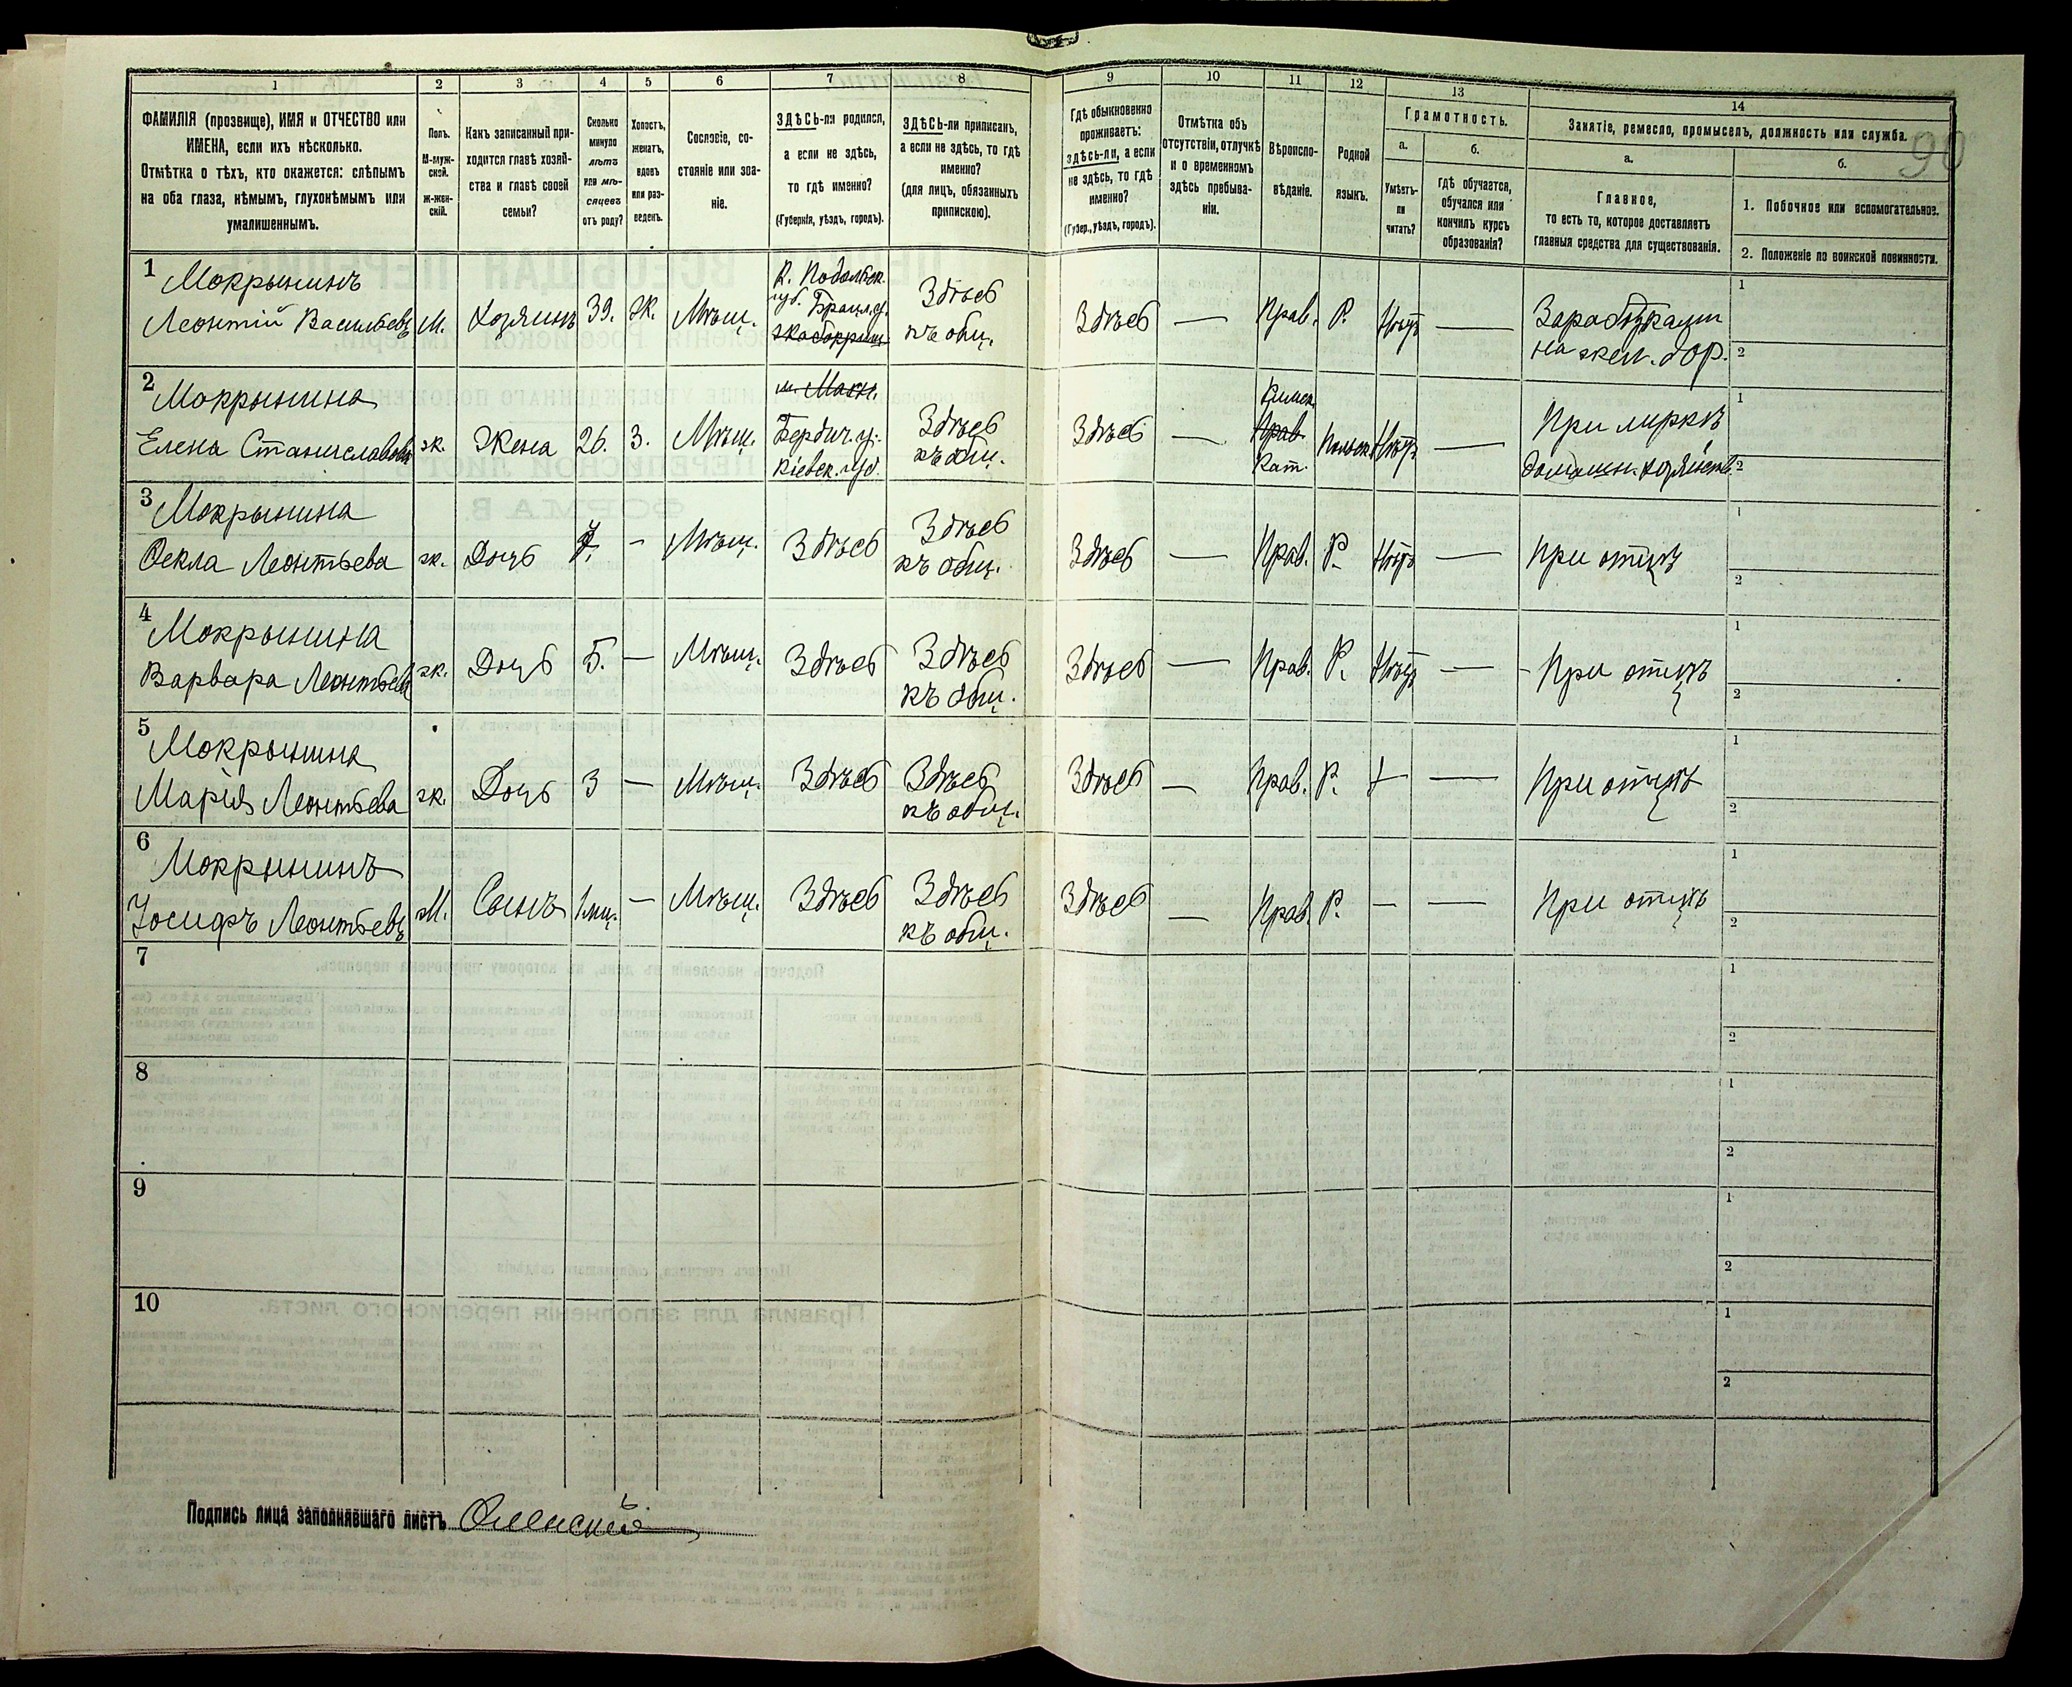 1 2 3 4 5 6 7 8 9 10 11 12 13 14
ФАМИЛІЯ (прозвище), ИМЯ и ОТЧЕСТВО или
ИМЕНА, если ихъ нѣсколько.
Отмѣтка о тѣхъ, кто окажется: слѣпымъ
на оба глаза, нѣмымъ, глухонѣмымъ или
умалишеннымъ.
Полъ.
М-муж-
ской.
Ж-жен-
скій.
Какъ записанный при-
ходится главѣ хозяй-
ства и главѣ своей
семьи?
Сколько
минуло
лѣтъ
или мѣ-
сяцевъ
отъ роду?
Холостъ,
женатъ,
вдовъ
или раз-
веденъ.
Сословіе, со-
стояніе или зва-
ніе.
ЗДѢСЬ-ли родился,
а если не здѣсь,
то гдѣ именно?
(Губернія, уѣздъ, городъ).
ЗДѢСЬ-ли приписанъ,
а если не здѣсь, то гдѣ
именно?
(для лицъ, обязанныхъ
припискою).
Гдѣ обыкновенно
проживаетъ:
здѣсь-ли, а если
не здѣсь, то гдѣ
именно?
(Губер., уѣздъ, городъ).
Отмѣтка объ
отсутствіи, отлучкѣ
и о временномъ
здѣсь пребыва-
ніи.
Вѣроиспо-
вѣданіе.
Родной
языкъ.
Грамотность.
а.
Умѣетъ-
ли
читать?
б.
Гдѣ обучается,
обучался или
кончилъ курсъ
образованія?
Занятіе, ремесло, промыселъ, должность или служба.
90
а.
Главное,
то есть то, которое доставляетъ
главныя средства для существованія.
б.
1. Побочное или вспомогательное.
2. Положеніе по воинской повинности.
1
Мокрынинъ
Леонтій Васильевъ
М.
Хозяинъ
39.
Ж.
Мѣщ.
Подольск.
губ. Брацл. у.
Здѣсь
къ общ.
Здѣсь
—
Прав.
Р.
Нѣтъ
—
на жел. дор.
1
2
2
Мокрынина
Елена Станиславова
ж.
Жена
26.
З.
Мѣщ.
Бердич. у.
Кіевск. губ.
Здѣсь
къ общ.
Здѣсь
—
Римск.
Прав
Кат.
Польск.
Нѣтъ
—
При
домашн. хозяйств.
1
2
3
Мокрынина
Ѳекла Леонтьева
ж.
Дочь
7.
—
Мѣщ.
Здѣсь
Здѣсь
къ общ.
Здѣсь
—
Прав.
Р.
Нѣтъ
—
При отцѣ
1
2
4
Мокрынина
Варвара Леонтьева
ж.
Дочь
5.
—
Мѣщ.
Здѣсь
Здѣсь
къ общ.
Здѣсь
—
Прав.
Р.
Нѣтъ
—
При отцѣ
1
2
5
Мокрынина
Марія Леонтьева
ж.
Дочь
3
—
Мѣщ.
Здѣсь
Здѣсь
къ общ.
Здѣсь
—
Прав.
Р.
—
—
При отцѣ
1
2
6
Мокрынинъ
Іосифъ Леонтьевъ
М.
Сынъ
1 мц.
—
Мѣщ.
Здѣсь
Здѣсь
къ общ.
Здѣсь
—
Прав.
Р.
—
—
При отцѣ
1
2
7
1
2
8
1
2
9
1
2
10
1
2
Подпись лица заполнявшаго листъ